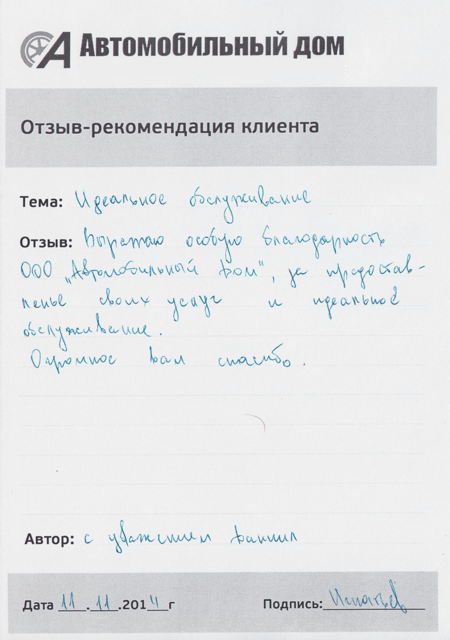 Автомобильный дом
Отзыв-рекомендация клиента
Тема: Идеальное обслуживание
Отзыв: Выражаю особую благодарность
ООО „Автомобильный Дом", за предостав-
ленье своих услуг и идеальное
обслуживание.
Огромное вам спасибо.
Автор: с уважением Даниил
Дата 11.11.2014г Подпись: Игнатьев